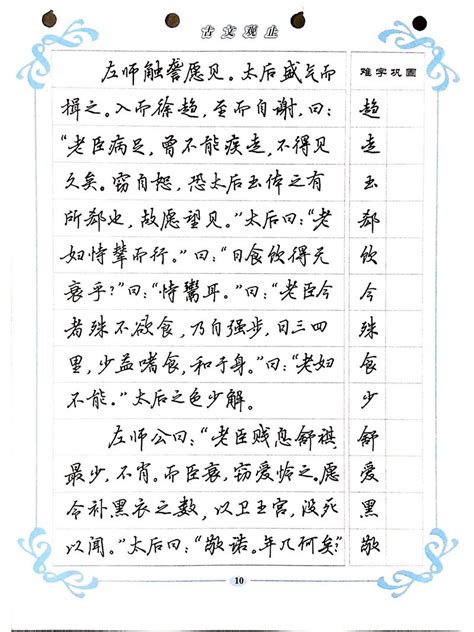 古文观止
左师触詟愿见。太后盛气而
揖之。入而徐趋,至而自谢,曰:
“老臣病足,曾不能疾走,不得见
久矣。窃自恕,恐太后玉体之有
所郄也,故愿望见。”太后曰:“老
妇恃辇而行。”曰:“日食饮得无
衰乎?”曰:“恃鬻耳。”曰:“老臣今
者殊不欲食,乃自强步,日三四
里,少益嗜食,和于身。”曰:“老妇
不能。”太后之色少解。
左师公曰:“老臣贱息舒祺,
最少,不肖。而臣衰,窃爱怜之。愿
令补黑衣之数,以卫王宫,没死
以闻。”太后曰:“敬诺。年几何矣?”
难字巩固
趋
走
玉
郄
饮
今
殊
食
少
舒
爱
黑
敬
10